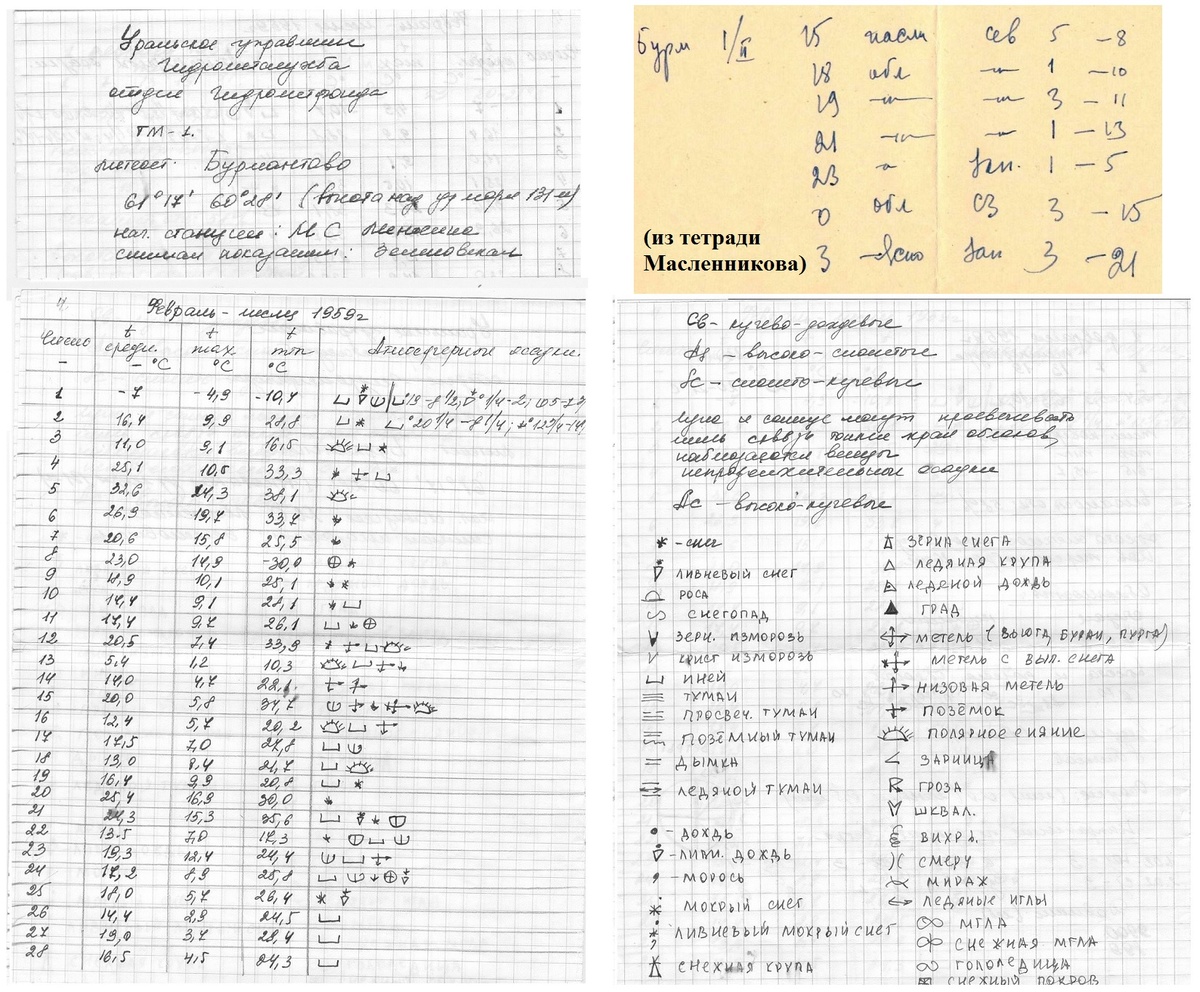 Уральское управлени
Гидрометслужба
отдел Гидрометфонда
ТМ-1.
метеост. Бурмантово
61°17' 60°28' (высота над ур моря 131 м)
нач. станции: М С
снимал показания:
Бурм 1/II 15 пасм сев 5 -8
18 обл -"- 1 -10
19 -"- -"- 3 -11
21 -"- -"- 1 -13
23 " Зап. 1 -5
0 обл СЗ 3 -15
3 Ясно Зап 3 -21
(из тетради
Масленникова)
4
Февраль - месяц 1959г
Число t средн. °C t max °C t min °C Атмосферные осадки.
1 -7 -4,9 -10,4
2 16,4 9,9 28,8
3 11,0 9,1 16,5
4 25,1 10,5 33,3
5 32,6 24,3 38,1
6 26,9 19,7 33,7
7 20,6 15,8 25,5
8 23,0 14,9 -30,0
9 10,1 25,1
10 14,4 9,1 22,1
11 17,4 9,7 26,1
12 20,5 7,4 33,9
13 5,4 1,2 10,3
14 14,0 4,7 22,1
15 20,0 5,8 34,7
16 12,4 5,7 20,2
17 17,5 7,0 27,8
18 13,0 8,4 21,7
19 16,4 9,9 20,8
20 25,4 16,9 30,0
21 24,3 15,3 35,6
22 13.5 7,0 17,3
23 19,3 12,4 24,4
24 17,2 8,9 25,8
25 18,0 5,7 26,4
26 14,4 2,9 24,5
27 19,0 3,7 28,4
28 16,5 4,5 24,3
Cb - кучево-дождевые
As - высоко-слоистые
Sc - слоисто-кучевые
луна и солнце могут просвечивать
лишь сквозь тонкие края облаков,
наблюдаются венцы
непродолжительные осадки
Ac - высоко-кучевые
* - снег
ливневый снег
роса
снегопад
зерн. изморозь
крист изморозь
иней
туман
просвеч. туман
позёмный туман
дымка
ледяной туман
- дождь
- ливн. дождь
- морось
мокрый снег
ливневый мокрый снег
снежная крупа
зёрна снега
ледяная крупа
ледяной дождь
град
метель (вьюга, буран, пурга)
метель с вып. снега
низовая метель
позёмок
полярное сияние
зарница
гроза
шквал.
вихрь.
смерч
мираж
ледяные иглы
мгла
снежная мгла
гололедица
снежный покров